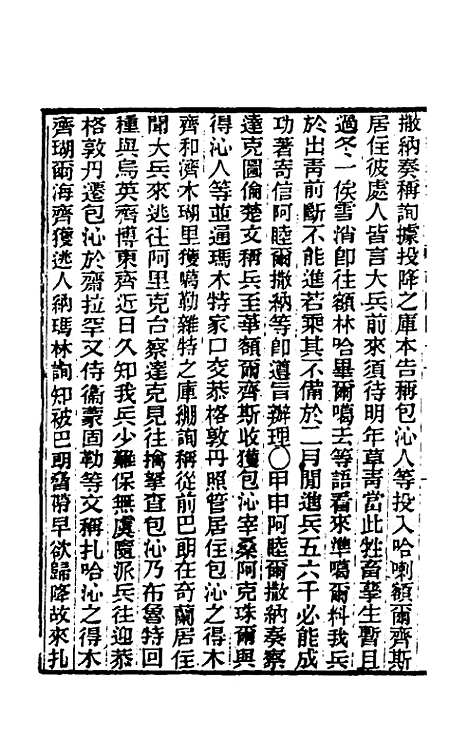 撒納奏稱詢據投降之庫本告稱包沁人等投入哈喇額爾齊斯
居住彼處人皆言大兵前來須待明年草青當此牲畜孳生暫且
過冬一俟雪消卽往額林哈畢爾噶去等語看來準噶爾料我兵
於出青前斷不能進若乘其不備於二月閒進兵五六千必能成
功著寄信阿睦爾撒納等卽遵旨辦理〇甲申阿睦爾撒納奏察
達克圖倫楚文稱兵至華額爾齊斯收獲包沁宰桑阿克珠爾與
得沁人等並通瑪木特家口交恭格敦丹照管居住包沁之得木
齊和濟木瑚里獲噶勒雜特之庫綳詢稱從前巴朗在奇蘭居住
聞大兵來逃往阿里克台察達克見往擒拏查包沁乃布魯特回
種與烏英齊博東齊近日久知我兵少難保無虞隨派兵往迎恭
格敦丹遷包沁於齋拉罕又侍衞蒙固勒等文稱扎哈沁之得木
齊瑚爾海齊獲逃人納瑪林詢知被巴朗脅帶早欲歸降故來扎